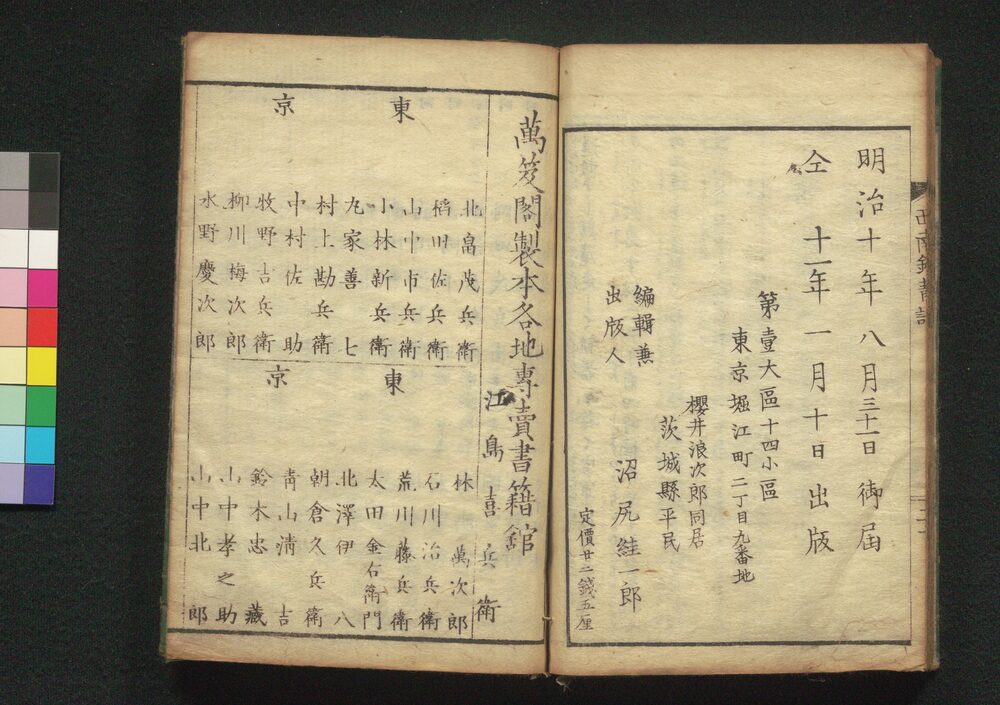 明治十年八月三十一日御届
仝十一年一月十日出版
第壹大區十四小區
東京堀江町二丁目九番地
櫻井浪次郎同居
茨城縣平民
編輯兼
出版人
沼尻絓一郎
定價廿二錢五厘
萬笈閣製本各地專賣書籍舘
江島喜兵衛
東京
北畠茂兵衛
稻田佐兵衛
山中市兵衛
小林新兵衛
丸家善七
村上勘兵衛
中村佐助
牧野吉兵衛
柳川梅次郎
水野慶次郎
東京
林萬次郎
石川治兵衛
荒川藤兵衛
太田金右衛門
北澤伊八
朝倉久兵衛
靑山淸吉
鈴木忠藏
山中孝之助
山中北郎